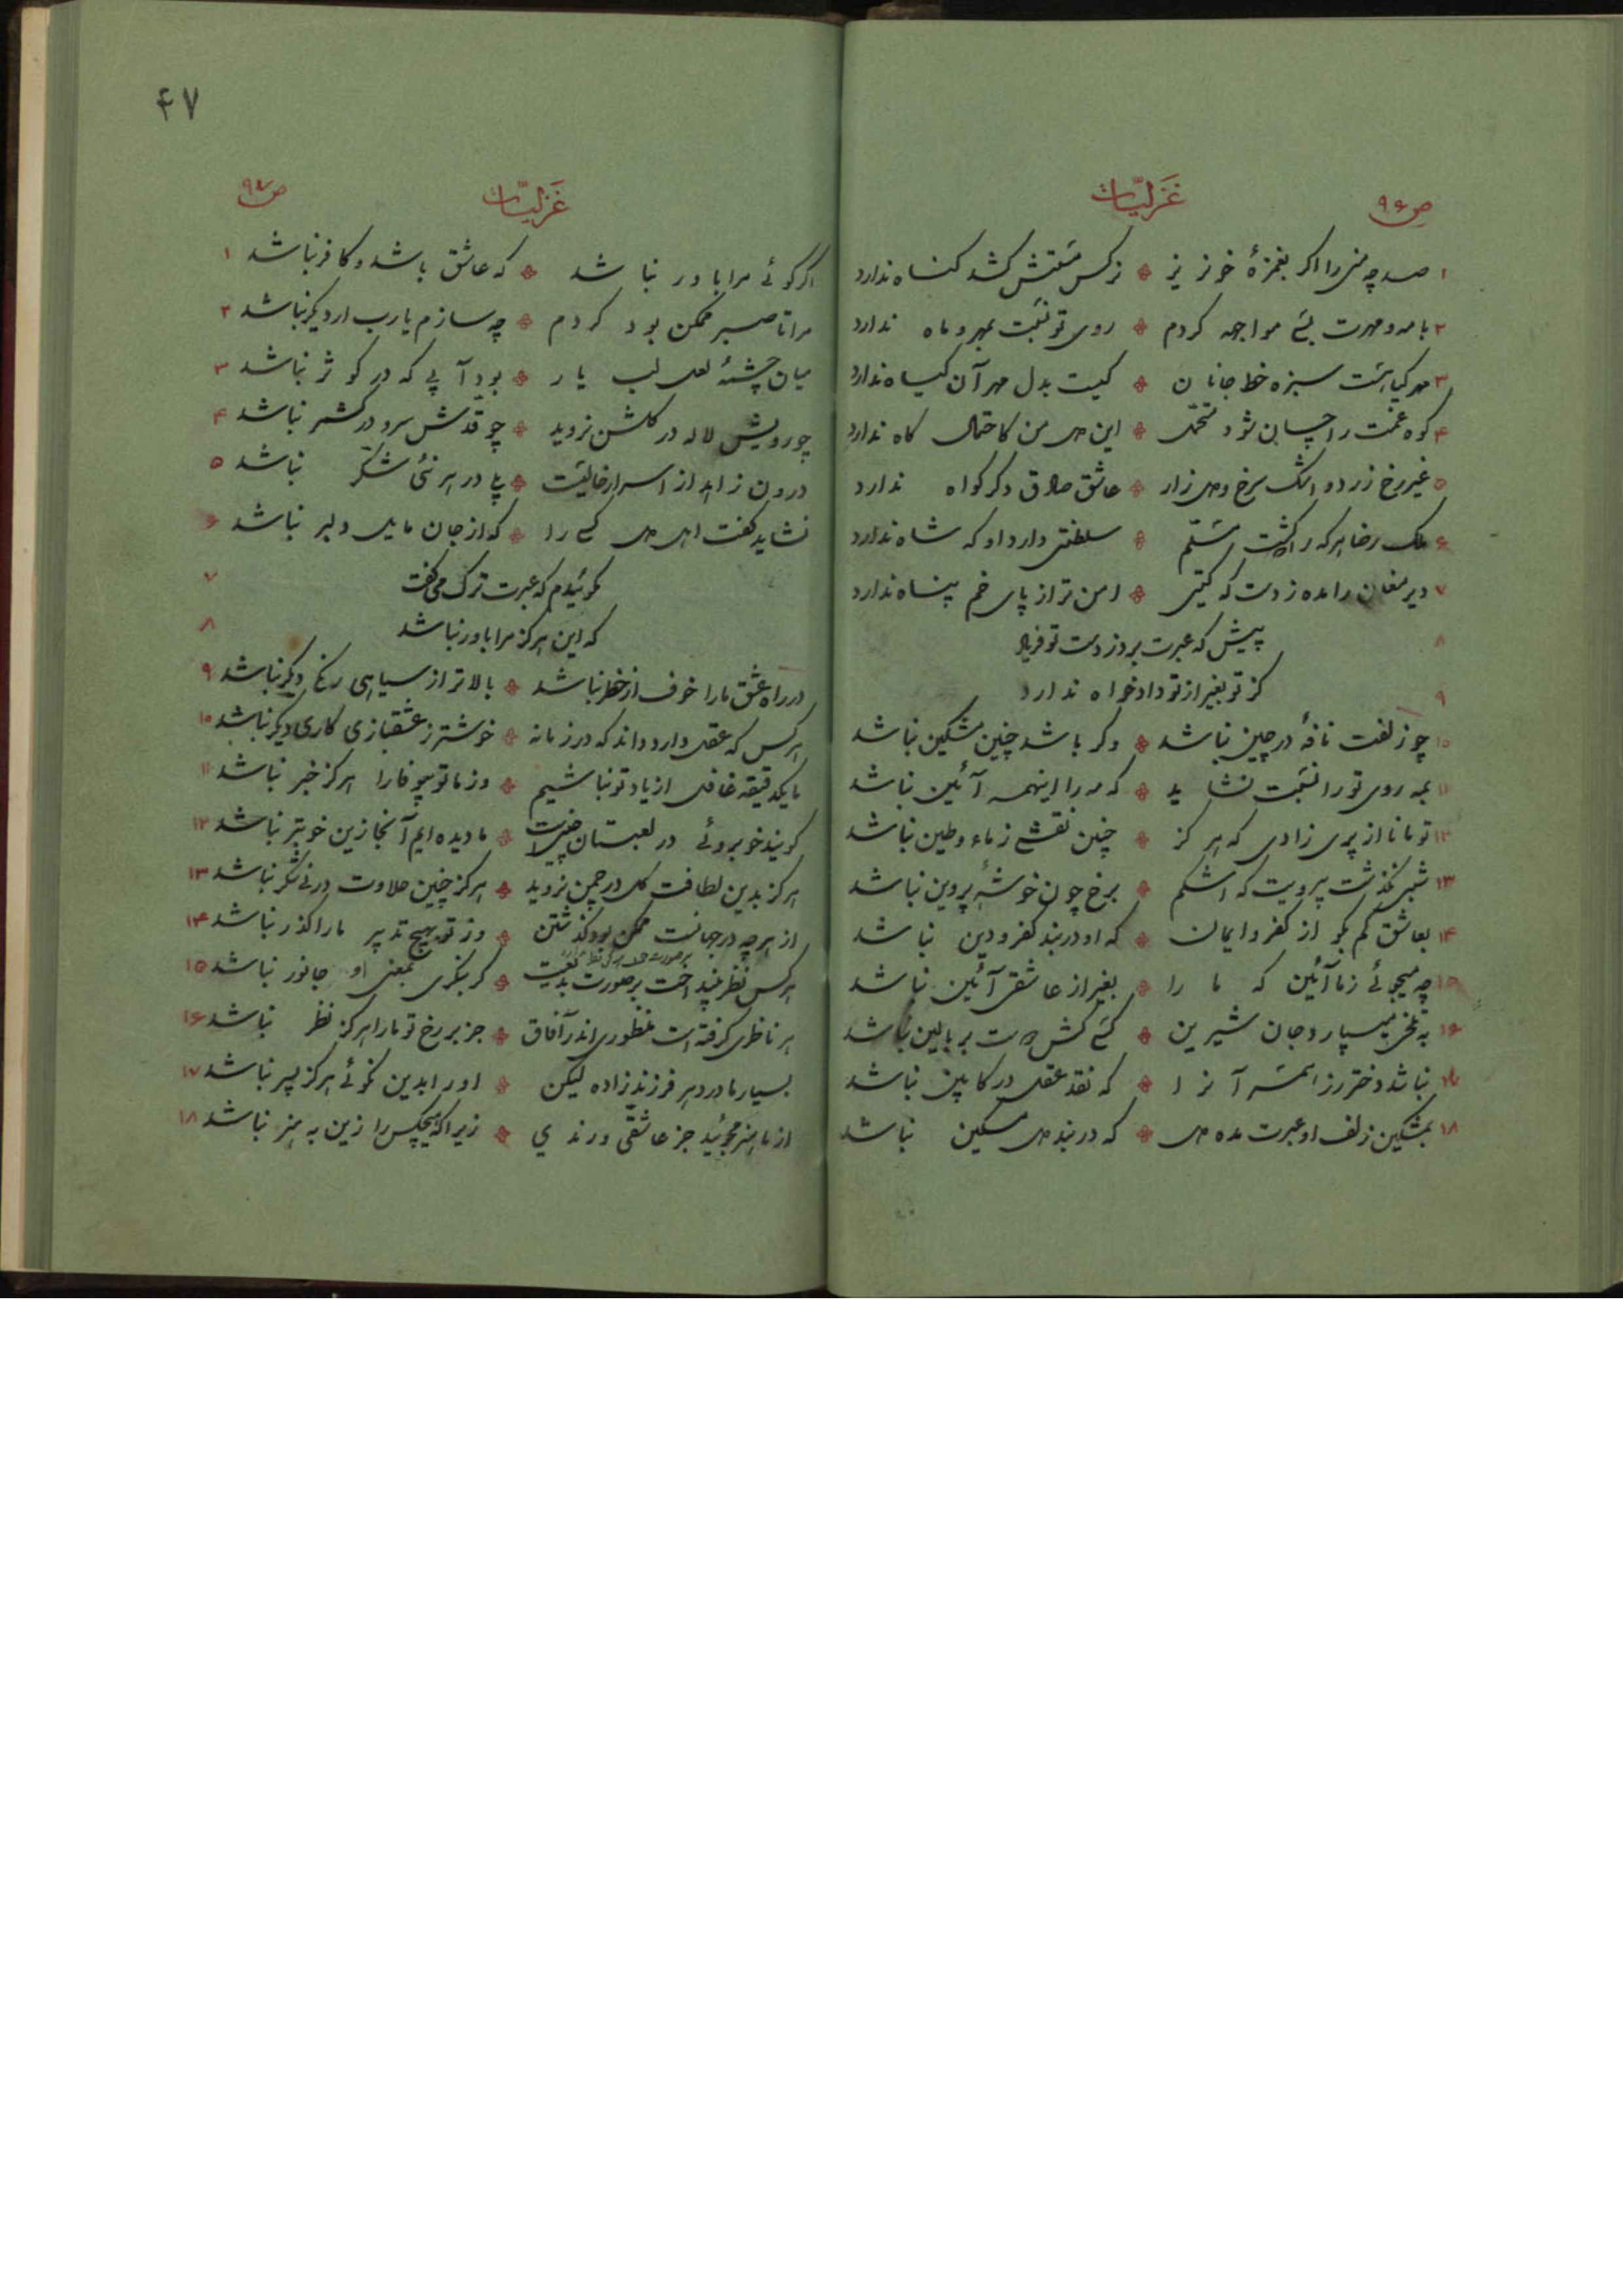 ص۹۶ غزلیّات
۱ صد چو منی را اگر بغمزهٔ خونریز ❖ نرگس مستش کشد گناه ندارد
۲ با مه و مهرت بسی مواجهه کردم ❖ روی تو نسبت بمهر و ماه ندارد
۳ مهر گیا است سبزه خط جانان ❖ کیست بدل مهر آن گیاه ندارد
۴ کوه غمت را چسان شود متحمّل ❖ این دل من کاحتمال کاه ندارد
۵ غیر رخ زرد و اشک سرخ و دل زار ❖ عاشق صادق دگر گواه ندارد
۶ ملک رضا هر که را گشت مسلّم ❖ سلطنتی دارد او که شاه ندارد
۷ دیر مغان را مده ز دست که گیتی ❖ امن تر از پای خم پناه ندارد
۸ پیش که عبرت برد ز دست تو فریاد
۹ کز تو بغیر از تو دادخواه ندارد
۱۰ چو زلفت نافهٔ در چین نباشد ❖ وگر باشد چنین مشکین نباشد
۱۱ بمه روی تو را نسبت نشاید ❖ که مه را اینهمه آئین نباشد
۱۲ تو مانا از پری زادی که هرگز ❖ چنین نقشی ز ماء و طین نباشد
۱۳ شبی نگذشت بیرویت که اشکم ❖ برخ چون خوشهٔ پروین نباشد
۱۴ بعاشق کم بگو از کفر و ایمان ❖ که او در بند کفر و دین نباشد
۱۵ چه میجوئی ز ما آئین که ما را ❖ بغیر از عاشقی آئین نباشد
۱۶ به تلخی میسپارد جان شیرین ❖ کسی کش دوست بر بالین نباشد
۱۷ نباشد دختر رز همسر آنرا ❖ که نقد عقل در کابین نباشد
۱۸ بمشکین زلف او عبرت مده دل ❖ که در بند دل مسکین نباشد
۴۷
غزلیّات ص۹۷
اگر گوئی مرا باور نباشد ❖ که عاشق باشد و کافر نباشد ۱
مرا تا صبر ممکن بود کردم ❖ چه سازم یارب ار دیگر نباشد ۲
میان چشمهٔ لعل لب یار ❖ بود آبی که در کوثر نباشد ۳
چو رویش لاله در گلشن نروید ❖ چو قدّش سرو در کشمر نباشد ۴
درون زاهد از اسرار خالیست ❖ بلی در هر نئی شکّر نباشد ۵
نشاید گفت اهل دل کسی را ❖ که از جان مایل دلبر نباشد ۶
گوئیدم که عبرت ترک می گفت ۷
که این هرگز مرا باور نباشد ۸
در راه عشق ما را خوف از خطر نباشد ❖ بالاتر از سیاهی رنگ دیگر نباشد ۹
هر کس که عقل دارد داند که در زمانه ❖ خوشتر ز عشقبازی کاری دگر نباشد ۱۰
ما یکدقیقه غافل از یاد تو نباشیم ❖ وز ما تو بیوفا را هرگز خبر نباشد ۱۱
گویند خوبروئی در لعبتان چین است ❖ ما دیده ایم آنجا زین خوبتر نباشد ۱۲
هرگز بدین لطافت گل در چمن نروید ❖ هرگز چنین حلاوت در نیشکر نباشد ۱۳
از هر چه در جهانست ممکن بود گذشتن ❖ وز تو بهیچ تدبیر ما را گذر نباشد ۱۴
هر کس نظر نینداخت بر صورت بدیعت ❖ گر بنگری بمعنی او جانور نباشد ۱۵
هر ناظری گرفته است منظوری اندر آفاق ❖ جز بر رخ تو ما را هرگز نظر نباشد ۱۶
بسیار مادر دهر فرزند زاده لیکن ❖ او را بدین نکوئی هرگز پسر نباشد ۱۷
از ما هنر مجوئید جز عاشقّی و رندی ❖ زیرا که هیچکس را زین به هنر نباشد ۱۸